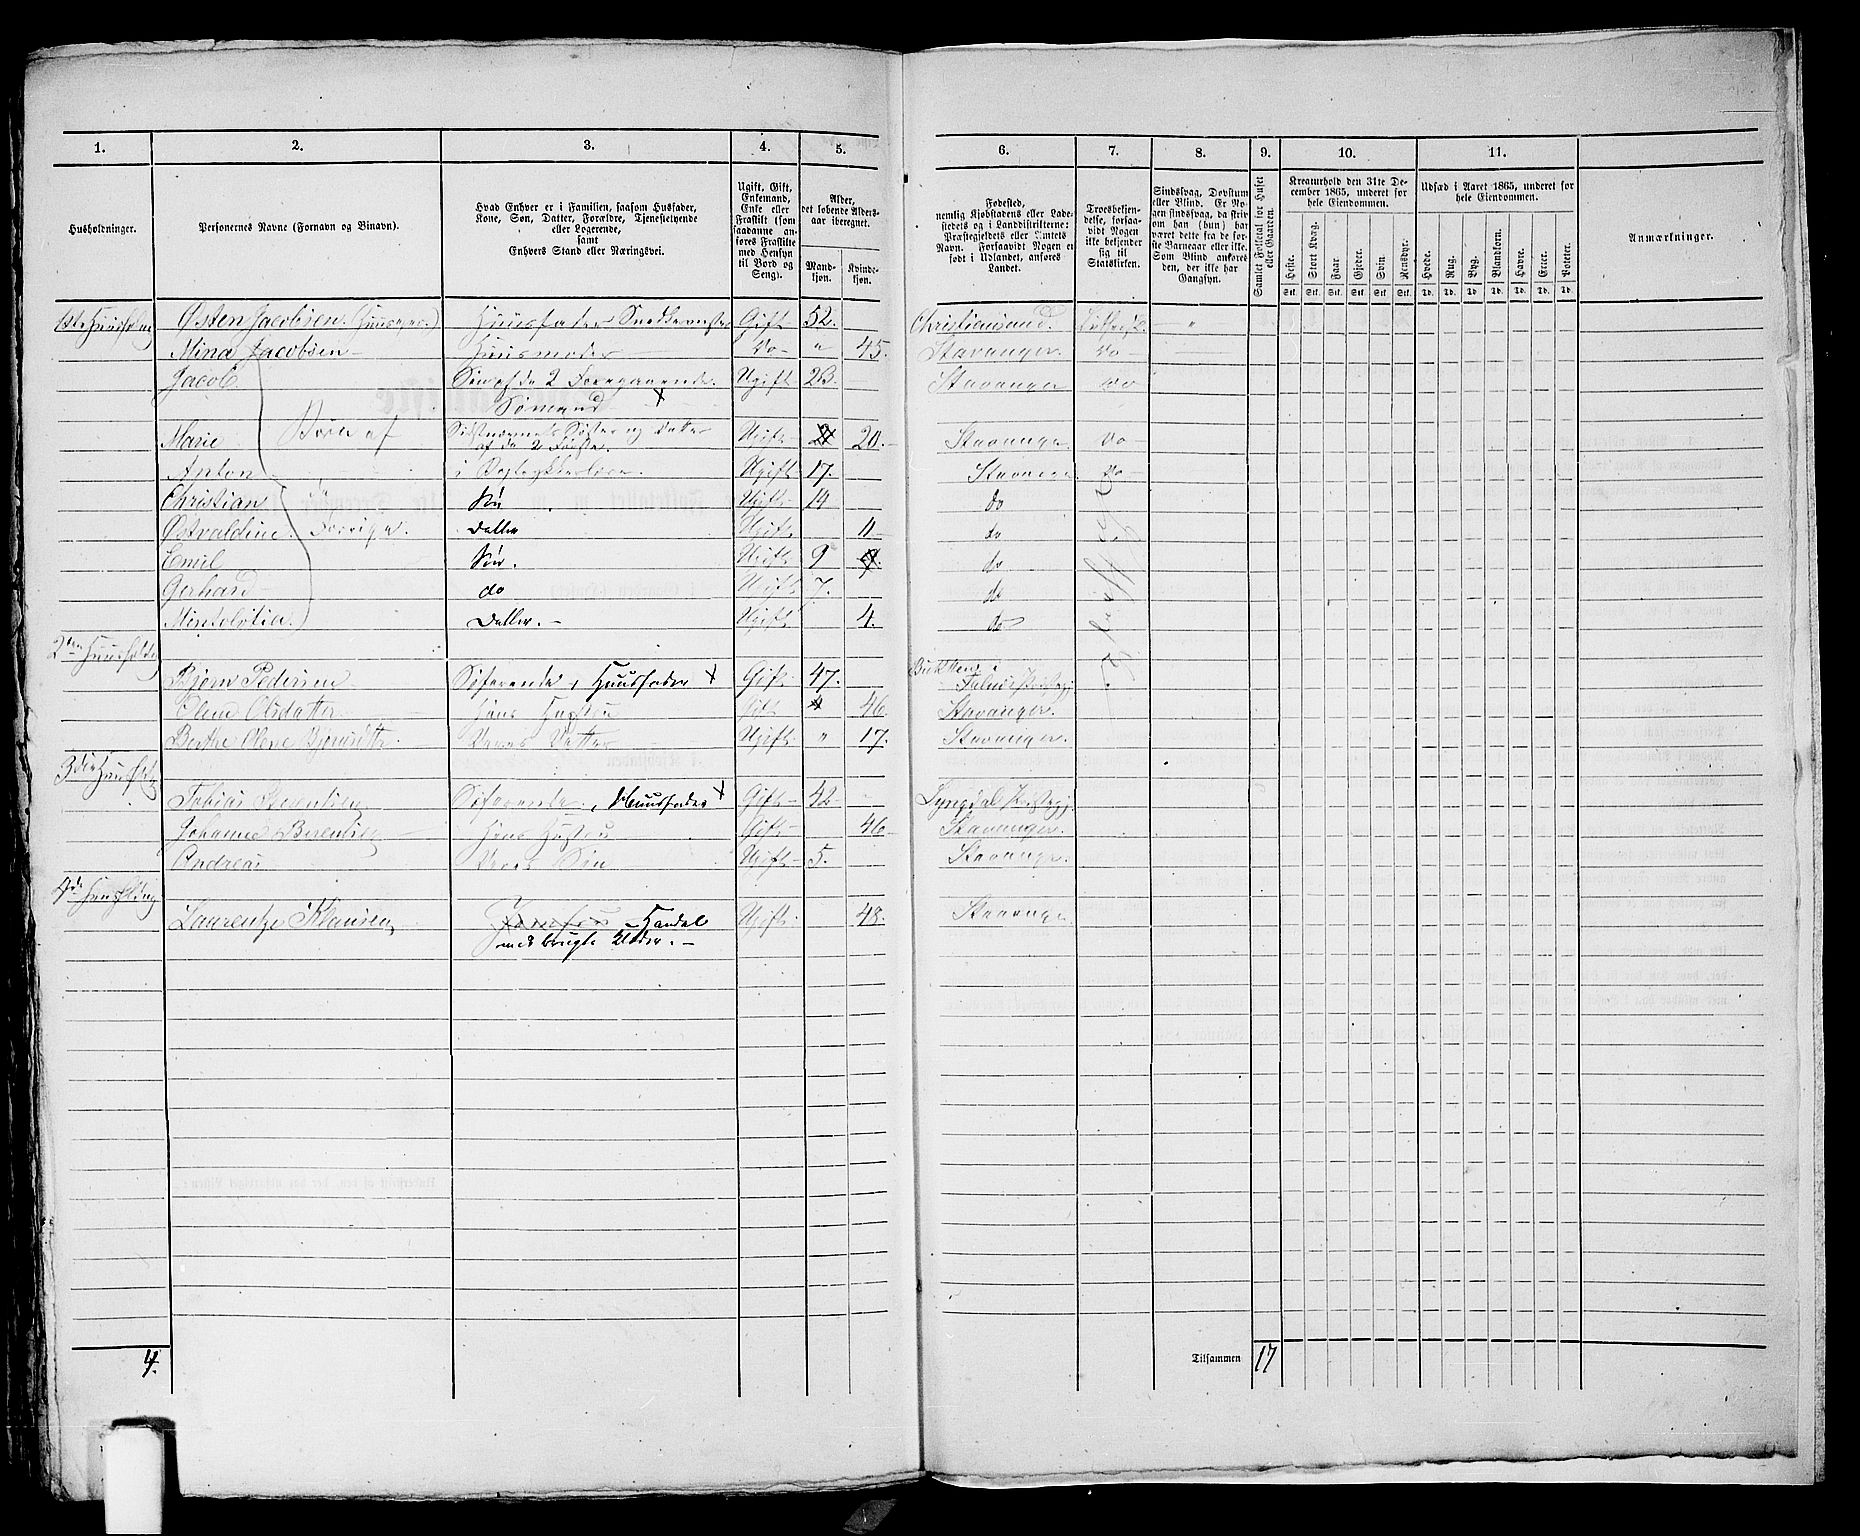 1. 2. 3. 4. 5. 6. 7. 8. 9. 10. 11.
Husholdninger.
Personernes Navne (Fornavn og Binavn).
Hvad Enhver er i Familien, saasom Husfader,
Kone, Søn, Datter, Forældre, Tjenestetyende
eller Logerende,
samt
Enhvers Stand eller Næringsvei.
Ugift, Gift,
Enkemand,
Enke eller
Fraskilt (som
saadanne an-
føres Fraskilte
med Hensyn
til Bord og
Seng).
Alder,
det løbende Alders-
aar iberegnet.
Mand-
kjøn.
Kvinde-
kjøn.
Fødested,
nemlig Kjøbstadens eller Lade-
stedets og i Landdistrikterne:
Præstegjeldets eller Amtets
Navn. Forsaavidt Nogen er
født i Udlandet, anføres
Landet.
Troesbekjen-
delse, forsaa-
vidt Nogen
ikke bekjender
sig til
Statskirken.
Sindssvag, Døvstum
eller Blind. Er No-
gen sindssvag, da skriv
om han (hun) har
været dette fra de før-
ste Barneaar eller ikke.
Som Blind anføres
den, der ikke har
Gangsyn.
Samlet Folketal for Huset
eller Gaarden.
Kreaturhold den 31te De-
cember 1865, underet for
hele Eiendommen.
Heste. Stort Kvæg. Faar. Gjeder. Svin. Rensdyr.
Stk. Stk. Stk. Stk. Stk. Stk.
Udsæd i Aaret 1865, underet for
hele Eiendommen.
Hvede. Rug. Byg. Blandkorn. Havre. Erter. Poteter.
Td. Td. Td. Td. Td. Td. Td.
Anmærkninger.
Østen Jacobsen. Huusfader Gift 52. Christiansand.
Mina Jacobsen Huusmoder Do " 45. Stavanger. Do
Jacob Søn af de 2 Foregaaende. Ugift 23. Stavanger Do
Sømand X
Marie Børn af Sidstnævntes Søster og Datter Ugift 20. Stavanger Do
af de 2 Første.
Anton Ugift 17. Stavanger Do
Christian Søn Ugift 14 do
Østvaldine. Datter Ugift 11 do
Emil Søn. Ugift 9 do
Gerhard do Ugift 7. do
Datter. Ugift 4. do
2den Huusholdning
Bjørn Pedersen Søfarende, Huusfader X Gift 47.
Elene Olsdatter Hans Hustru Gift 46 Stavanger.
Berthe Olene Deres Datter Ugift " 17. Stavanger.
3die
Tobias Søfarende, Huusfader X Gift 42 Lyngdal
Johanne Hans Hustru Gift 46 Stavanger.
Andreas Deres Søn Ugift 5. Stavanger.
4de
Laurentze Handel Ugift 48. Stavanger
med brugte Klæder.
4.
Tilsammen 17